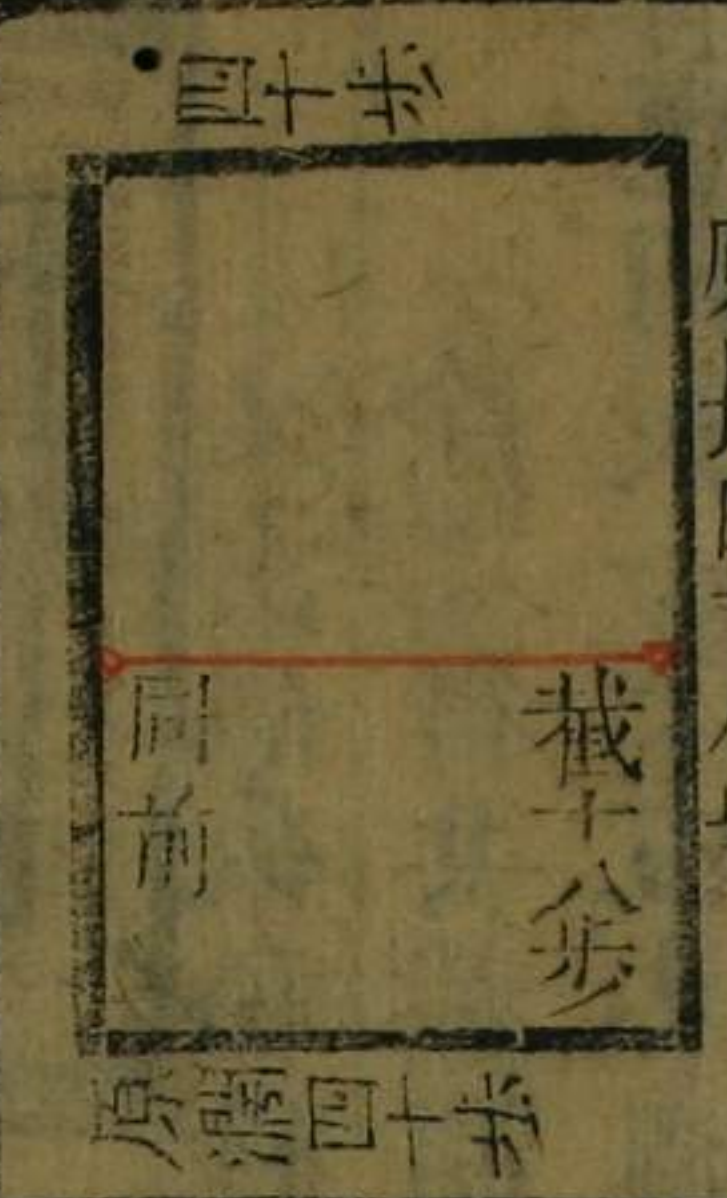 四十步
截十八步
同前
原濶四十步